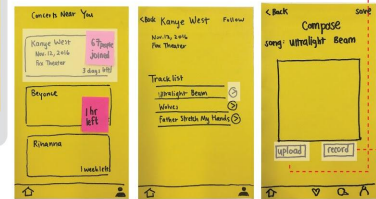 Concerts Near You
Kanye West
Nov. 12, 2016
Fox Theater
67 people
Joined
3 days left
Beyonce
1 hr
left
Rihanna
1 week left
<Back Kanye West Follow
Nov. 12, 2016
Fox Theater
Tracklist
Ultralight Beam
Wolves
Father Stretch My Hands
<Back Save
Compose
Song: Ultralight Beam
upload record